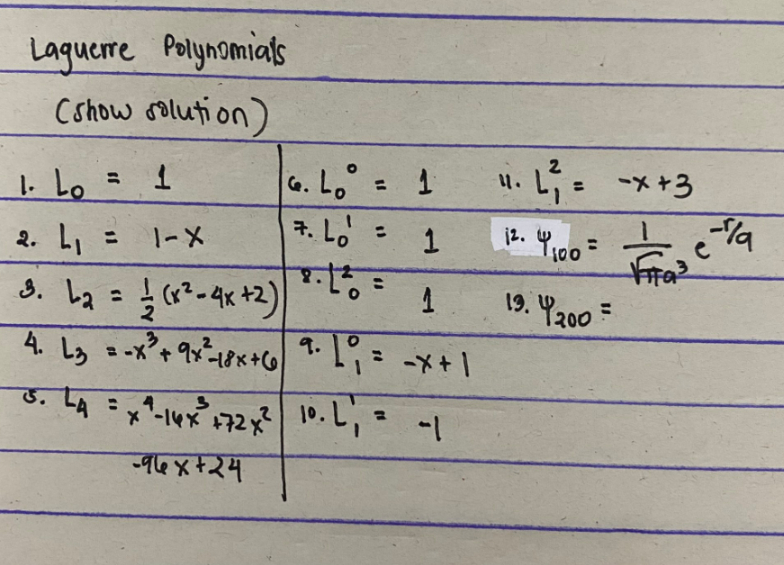 Laguerre Polynomials
(show solution)
1. L₀ = 1
2. L₁ = 1-x
3. L₂ = 1/2 (x²-4x+2)
4. L₃ = -x³+9x²-18x+6
5. L₄ = x⁴-16x³+72x²
-96x+24
6. L₀⁰ = 1
7. L₀¹ = 1
8. L₀² = 1
9. L₁⁰ = -x+1
10. L₁¹ = -1
11. L₁² = -x+3
12. Ψ₁₀₀ = 1/√πa³ e^-r/a
13. Ψ₂₀₀ =